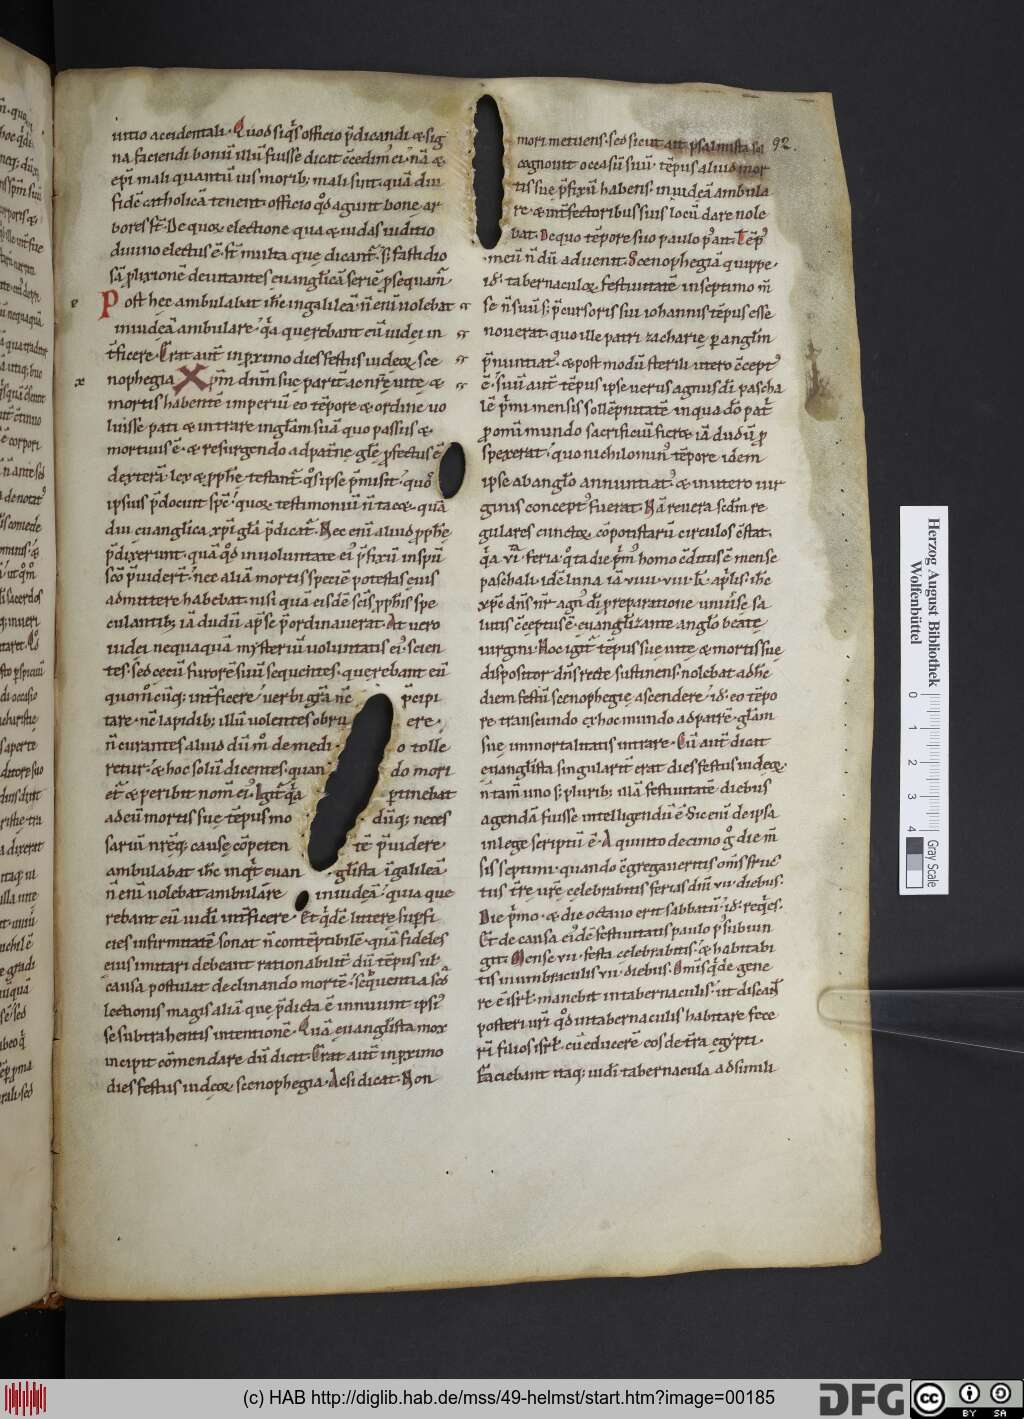 uitio accidentali. Quod siq̄s officio p̄dicandi & sig
na faciendi bonū illū fuisse dicat c̄cedim̉ ei. nā &
ep̄i mali quantū uis morib; mali sint. quā diu
fidē catholicā tenent. officio q̊d agunt bone ar
bores sт̄. De quoꝝ electione qua & iudas iuditio
diuino electus ē. sт̄ multa que dicant̄. S; fastidio
sā plixionē deuitantes euanglicā seriē p̄sequam̄.
Post hec ambulabat ihc̄ in galileā. n̄ enī uolebat
in iudeā ambulare. q̄a querebant eū iudei in
т̄ficere. Erat aut̄ in pximo dies festus iudeoꝝ sce
nophegia. Xpm̄ dnm̄ sue partū ac nr̄e uite &
mortis habentē imperiū eo tēpore & ordine uo
luisse pati & intrare in glam̄ suā quo passus &
mortuus ē. & resurgendo ad patnē glē pfectus ē
dexterā. lex & pphē testant̄. q̊s ipse p̄misit. quo̊
ipsius p̄docuit spc̄. quoꝝ testimoniū n̄ tac&. quā
diu euanglica xp̄i glā p̄dicat̄. Nec enī aliud pphē
p̄dixerunt. quā q̊d in uoluntate eỉ p̄fixū in spū
sc̄o p̄uidert̄. nec aliā mortis speciē potestas eius
admittere habebat. nisi quā eisdē sc̄is pphis̄ spe
culantib; iā dudū ap̄se p̄ordinauerat. At uero
iudei nequaquā mysteriū uoluntatis eỉ. scien
tes. sed cecū furorē suū sequentes. querebant eū
quom̊ cūq; int̄ficere. uerbi grā. nē p̄cipi
tare. nē lapidib; illū uolentes obru ere.
n̄ curantes aliud dū m̊ de medi o tolle
retur. & hoc solū dicentes. quan do mori
et̄. & peribit nom̄ eỉ. Igit̄ q̄a ptinebat
ad eū mortis sue tēpus mo dūq; neces
sariū nr̄eq; cause cōpeten tē p̄uidere.
ambulabat ihc̄ inq̄t euan glista ī galileā.
n̄ enī uolebat ambulāre in iudeā. quia que
rebant eū iudī int̄ficere. Et q̄dē littere supfi
cies infirmitatē sonat n̄ contēptibilē. quā fideles
eius imitari debeant rationabilit̄ dū tēpus ut
causa postulat declinando mortē. seq̄entia sed̄
lectionis magis aliā que p̄dicta ē innuunt ipsỉ
se subtrahentis intentionē. Quā euanglista mox
incipit cōmendare dū dicit. Erat aut̄ in pximo
dies festus iudeoꝝ scenophegia. Acsi dicat. Non
92.
mori metuens. sed sicut ait psalmista sol
cognouit occasū suū. tēpus aliud mor
tis sue p̄fixū habens. in iudeā ambula
re. & int̄fectoribus suis locū dare nole
bat. De quo tēpore suo paulo p̉ ait. Tēp̉
meū n̄ dū aduenit. Scenophegiā quippe.
id. tabernaculoꝝ festiuitatē in septimo m̄
se n̄ suū s; p̄cursoris sui iohannis tēpus esse
nouerat. quo ille patri zacharie p anglm̄
p̄nuntiat̉. & post modū sterili utero c̄cept̉
ē. suū aut̄ tēpus ipse uerus agnus dī. pascha
lē p̄mi mensis sollēpnitatē in qua dō pat̄
p omī mundo sacrificiū fier& iā dudū p
spexerat. quo nichilomin̉ tēpore idem
ipse ab anglo annuntiat̉. & in utero uir
ginis concept̉ fuerat. Nā reuera sedm̄ re
gulares cunctoꝝ cōpotistarū circulos c̄stat.
q̄a .vi. feria. q̊ta die p̄m̉ homo c̄ditus ē mense
paschali. idē luna iā viiii. viii. kl̄. aplis̄. ihc̄
xpc̄ dns̄ nr̄ agn̉ dī. preparatione uniuse sa
lutis c̄ceptus ē. euanglizante anglo beate
uirgini. Hoc igit̄ tēpus sue uite & mortis sue
dispositor dns̄ recte sustinens. nolebat ad hc̄
diem festū scenophegie ascendere. id. eo tēpo
re transeundo ex hoc mundo ad patrē. glam̄
sue immortalitatis intrare. Cū aut̄ dicit
euanglista singularit̄ erat dies festus iudeoꝝ.
n̄ tam̄ uno s; plurib; illā festiuitatē diebus
agendā fuisse intelligendū ē. Sic enī de ipsa
in lege scriptū ē. A quinto decimo g̊ die m̄
sis septimi. quando c̄gregaueritis oms̄ fruc̄
tus tr̄e ur̄e. celebrabitis ferias dnī .vii. diebus.
Die p̄mo. & die octauo erit sabbatū. id. req̄es.
Et de causa eỉdē festiuitatis paulo p̉ subiun
git. Mense .vii. festa celebrabitis. & habitabi
tis in umbraculis .vii. diebus. Omīs q̄ de gene
re ē isrl̄. manebit in tabernaculis. ut discant̄
posteri ur̄i q̊d in tabernaculis habitare fece
rī filios isrl̄. cū educerē eos de tr̄a egipti.
Faciebant itaq; iudi tabernacula ad simili
Herzog August Bibliothek
Wolfenbüttel
0 1 2 3 4
Gray Scale
(c) HAB http://diglib.hab.de/mss/49-helmst/start.htm?image=00185
DFG
cc BY SA